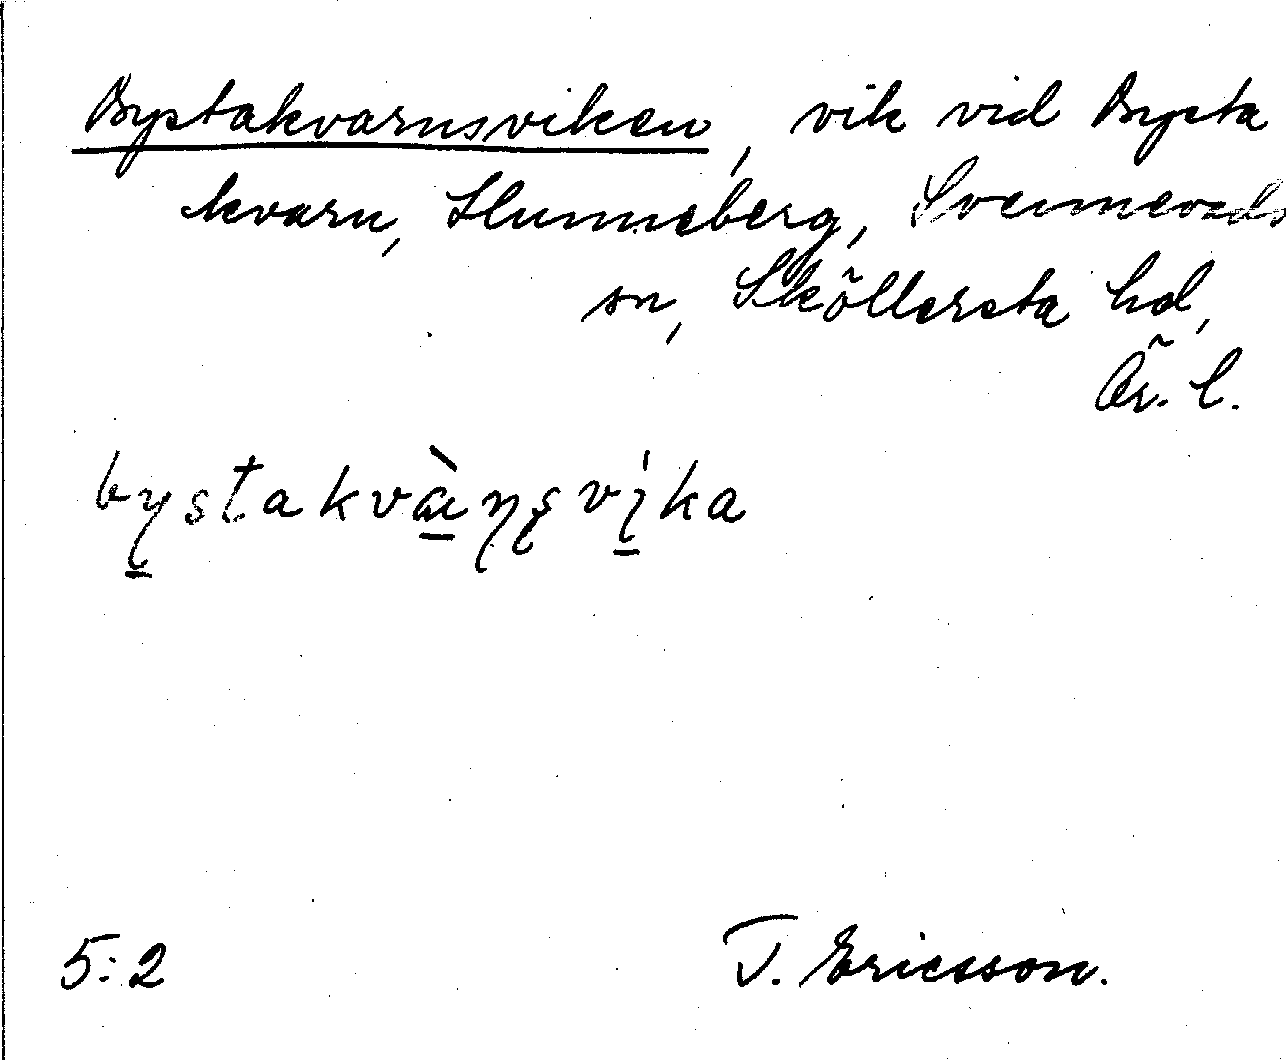 Bystakvarnsviken, vik vid Bysta
kvarn, Slunneberg, Svennevads
sn, Sköllersta hd,
Ör. l.
bystakvàṇṣvika
5:2
T. Ericsson.